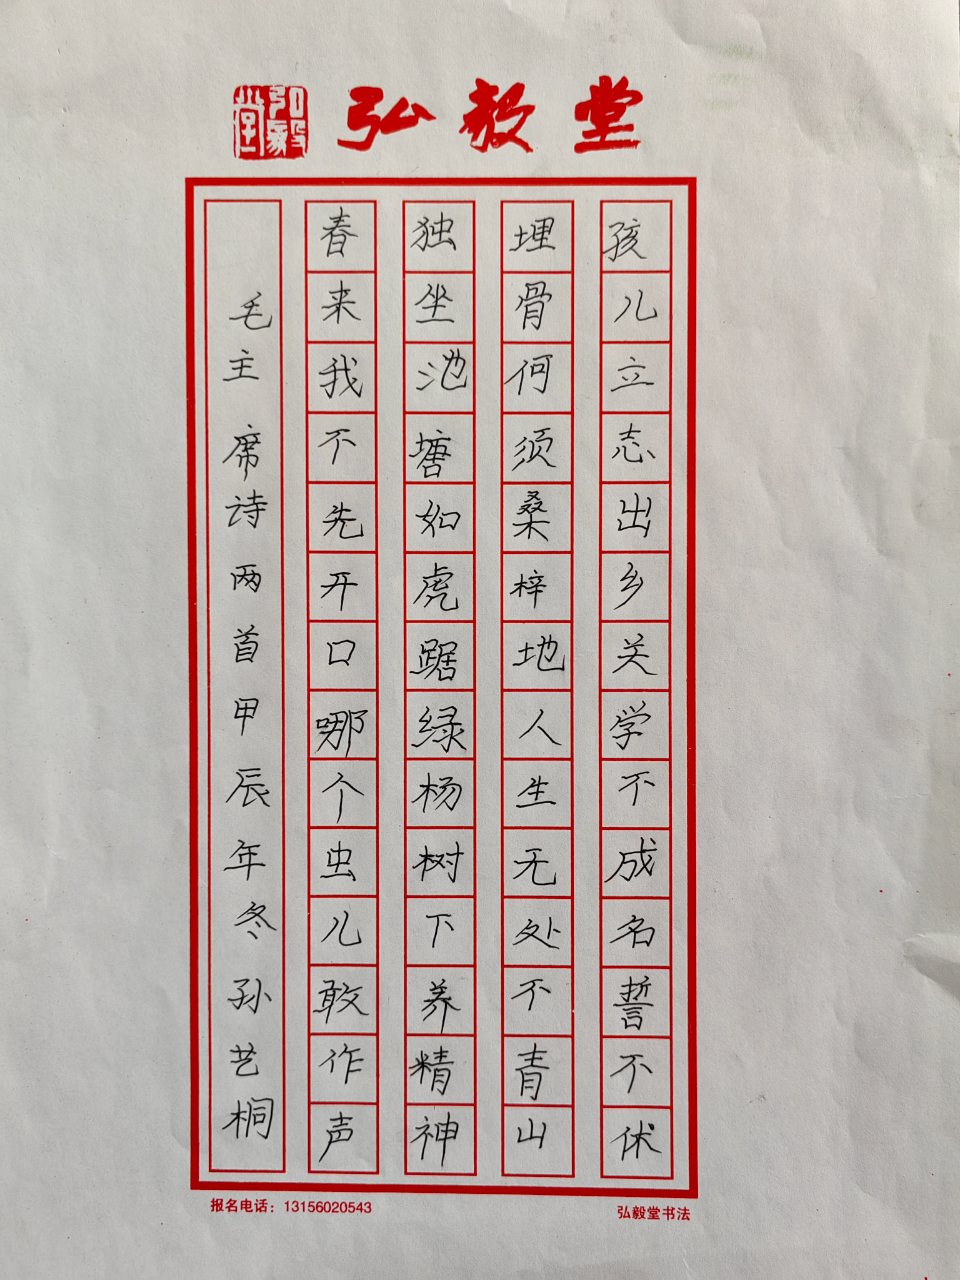 弘毅堂
弘毅堂
孩儿立志出乡关学不成名誓不休
埋骨何须桑梓地人生无处不青山
独坐池塘如虎踞绿杨树下养精神
春来我不先开口哪个虫儿敢作声
毛主席诗两首甲辰年冬孙艺桐
报名电话：13156020543
弘毅堂书法